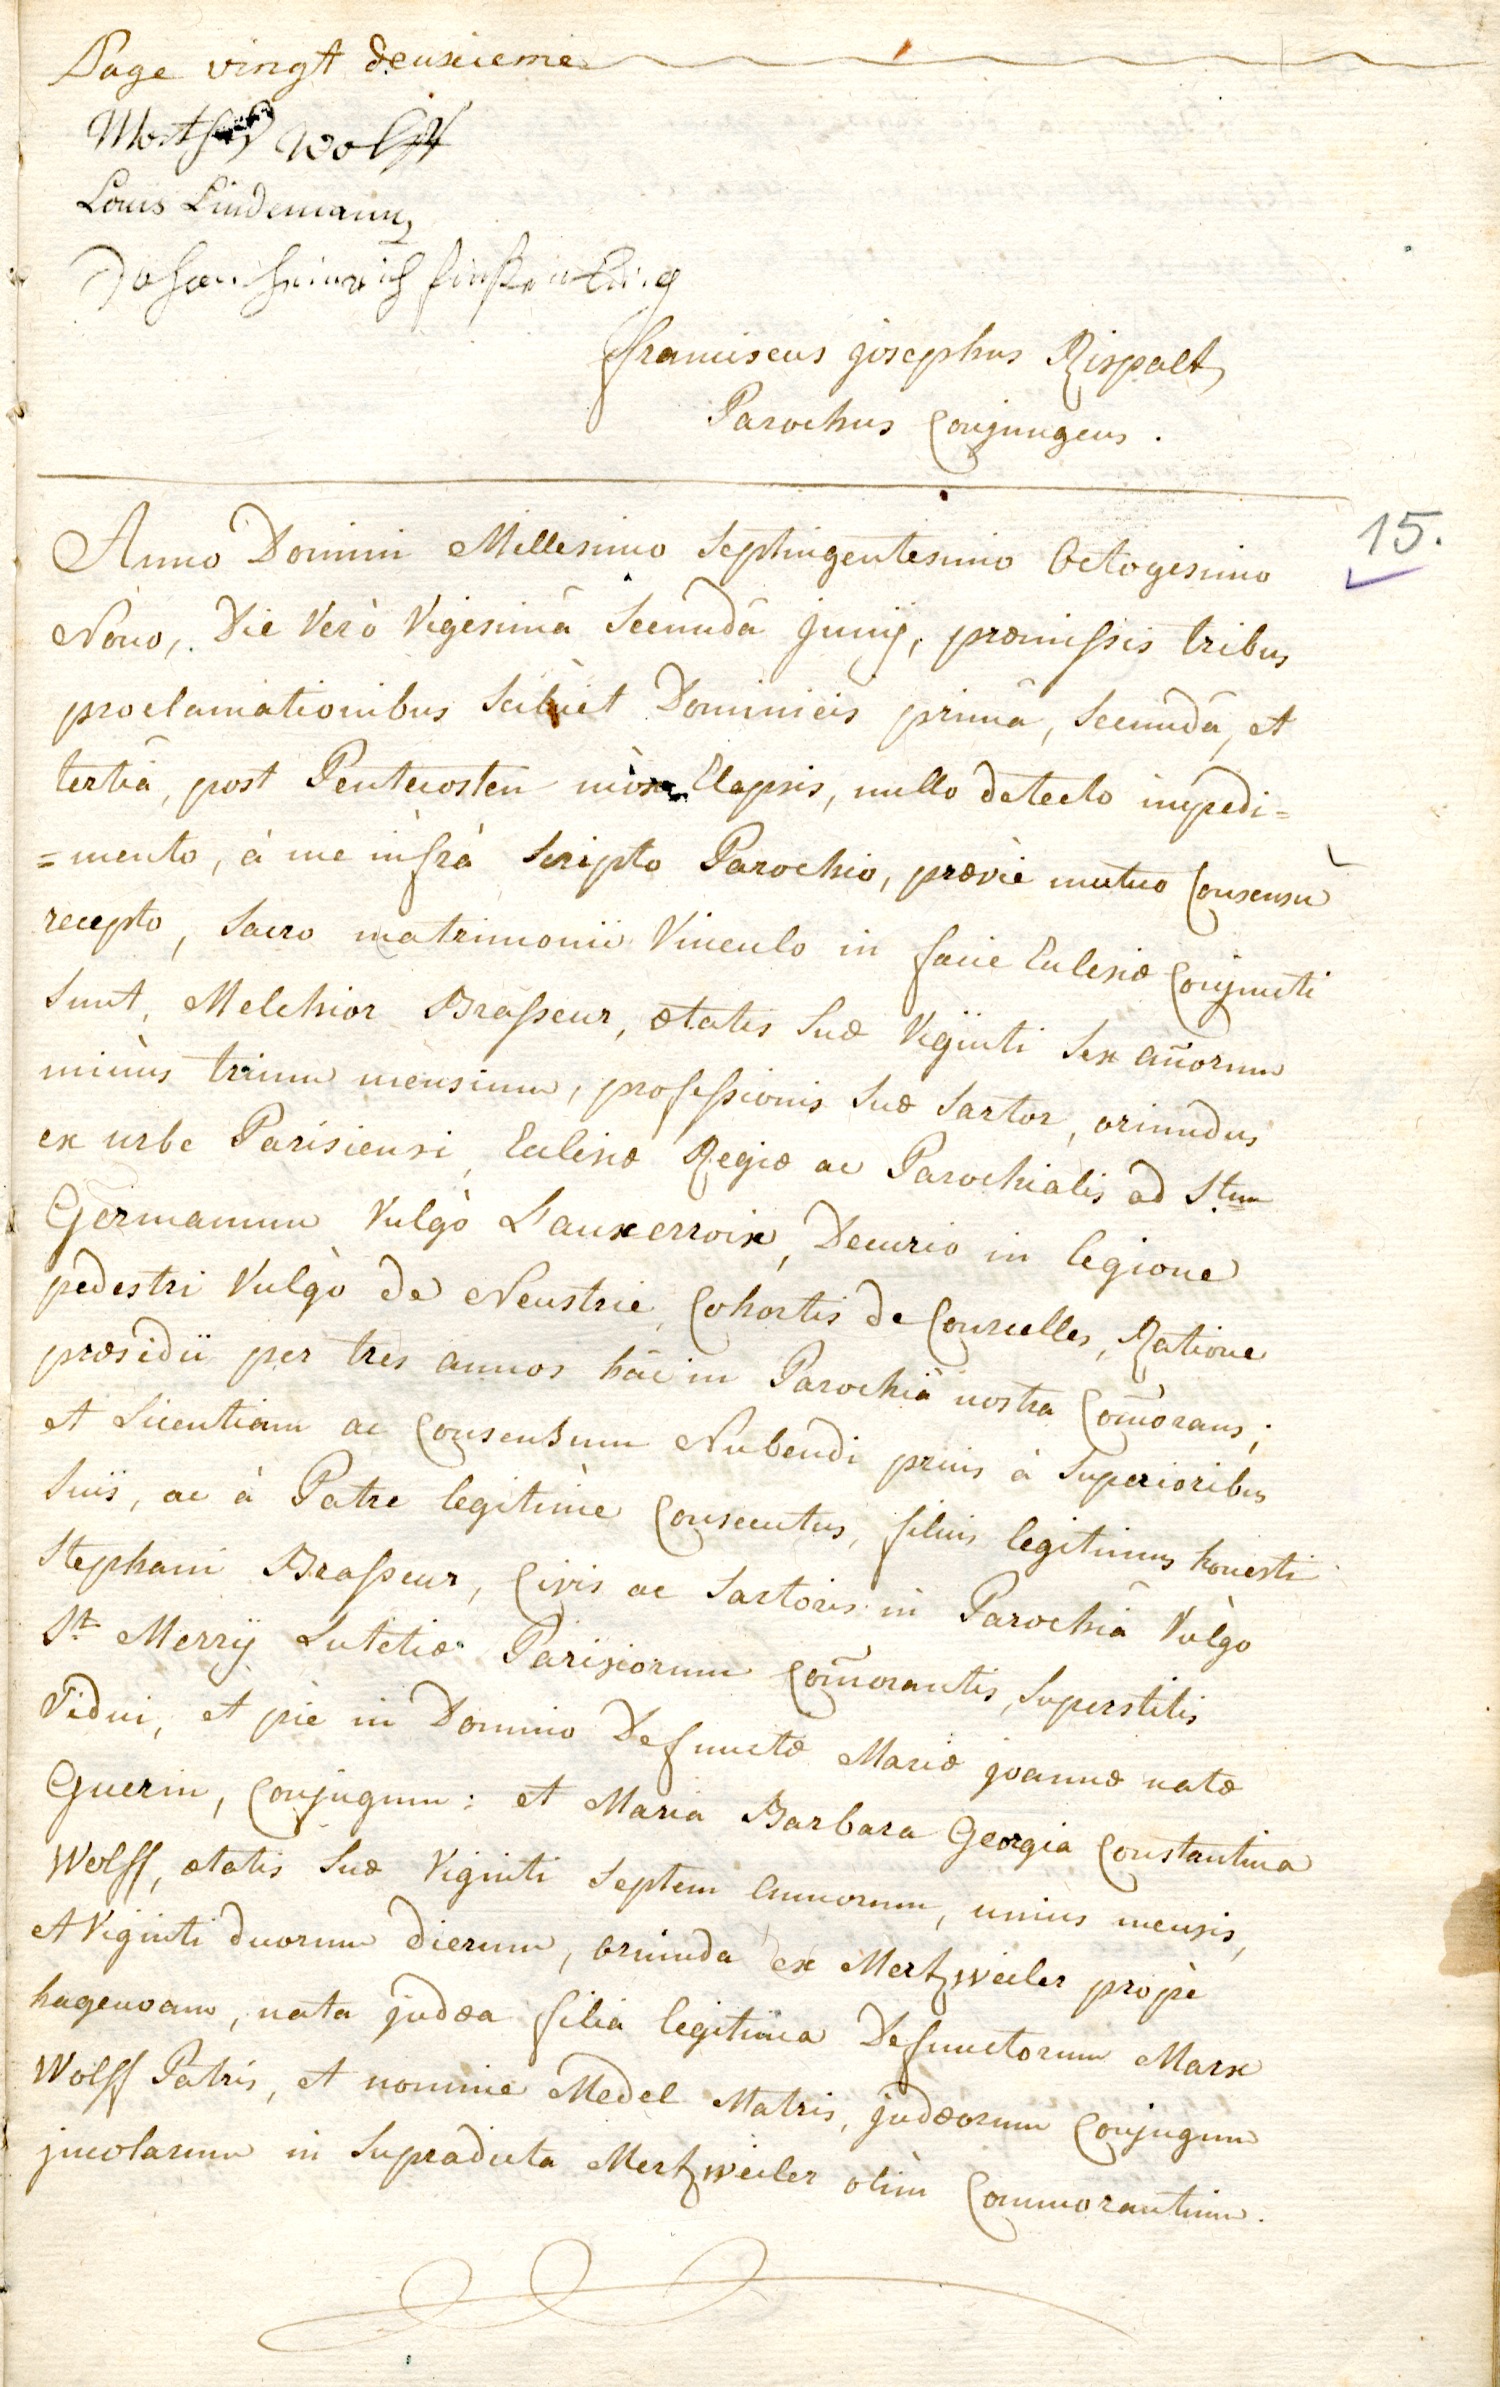 Page vingt deuxieme
Wolff
Louis Lindemann
Johan Heinrich
franciscus josephus Rispalt
Parochus Conjungens.
15.
Anno Domini Millesimo Septingentesimo Octogesimo
Nono, Die Verò Vigesimâ Secundâ Junij, præmissis tribus
proclamationibus Scilicet Dominicis primâ, Secundâ, et
tertiâ, post Pentecosten Elapsis, nullo detecto impedi=
=mento, à me infrà Scripto Parocho, prævie mutuo Consensu
recepto, Sacro matrimonii Vinculo in facie Eclesiæ Conjuncti
Sunt, Melchior Brasseur, ætatis Suæ Viginti Sex añorum
minùs trium mensium, professionis Suæ Sartor, oriundus
ex urbe Parisiensi, Eclesiæ Regiæ ac Parochialis ad Stum
Germanum Vulgò L'auxerroix, Decurio in legione
pedestri Vulgò de Neustrie, Cohortis de Courcelles, Ratione
præsidii per tres annos hâc in Parochiâ nostra Com̃orans;
et Licentiam ac Consensum Nubendi prius à Superioribus
Suis, ac à Patre legitimè Consecutus, filius legitimus honesti
Stephani Brasseur, Civis ac Sartoris in Parochiâ Vulgo
St. Merrÿ Lutetiæ Parisiorum Com̃orantis, Superstitis
Vidui, et piè in Domino Defunctæ Mariæ joannæ natæ
Guerin, Conjugum: et Maria Barbara Georgia Constantina
Wolff, ætatis Suæ Viginti Septem Annorum, unius mensis,
et Viginti duorum dierum, oriunda ex Mertzweiler propè
hagenoam, nata judæa filia legitima Defunctorum Marx
Wolff Patris, et nomine Medel Matris, judæorum Conjugum
jncolarum in Supradicta Mertzweiler olim Commorantium.